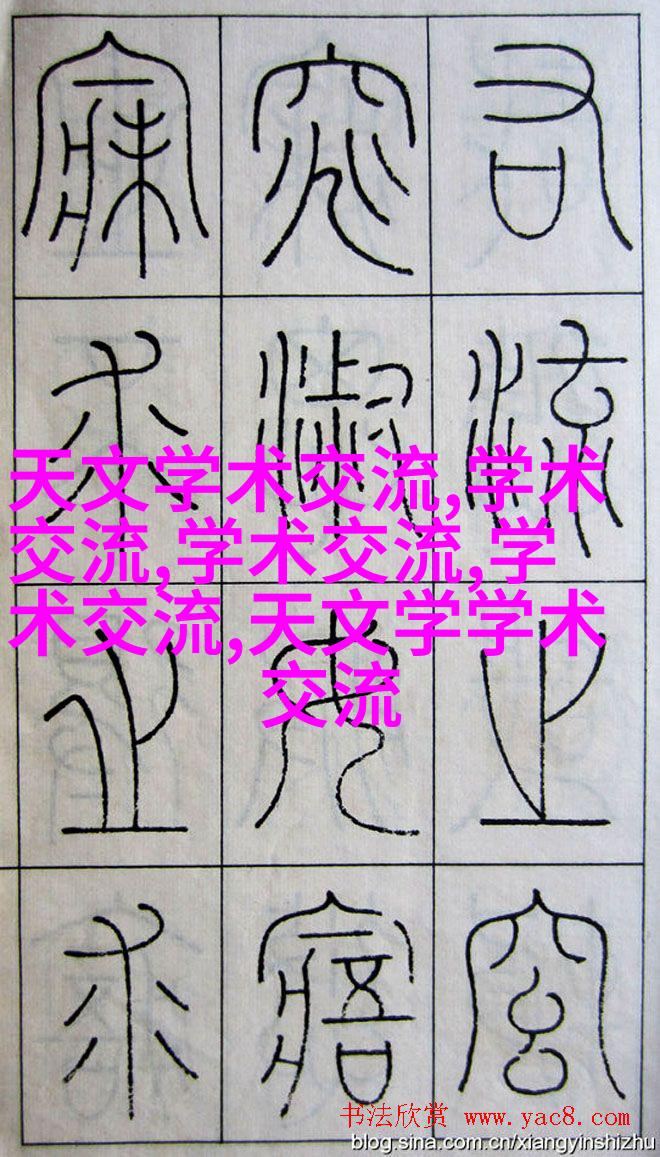 右流之窈
窕淑女寤
寐求之求
天文学术交流,学术
交流,学术交流,学
术交流,天文学学术
交流
书法欣赏 www.yac8.com
blog.sina.com.cn/xiangyinshizhu